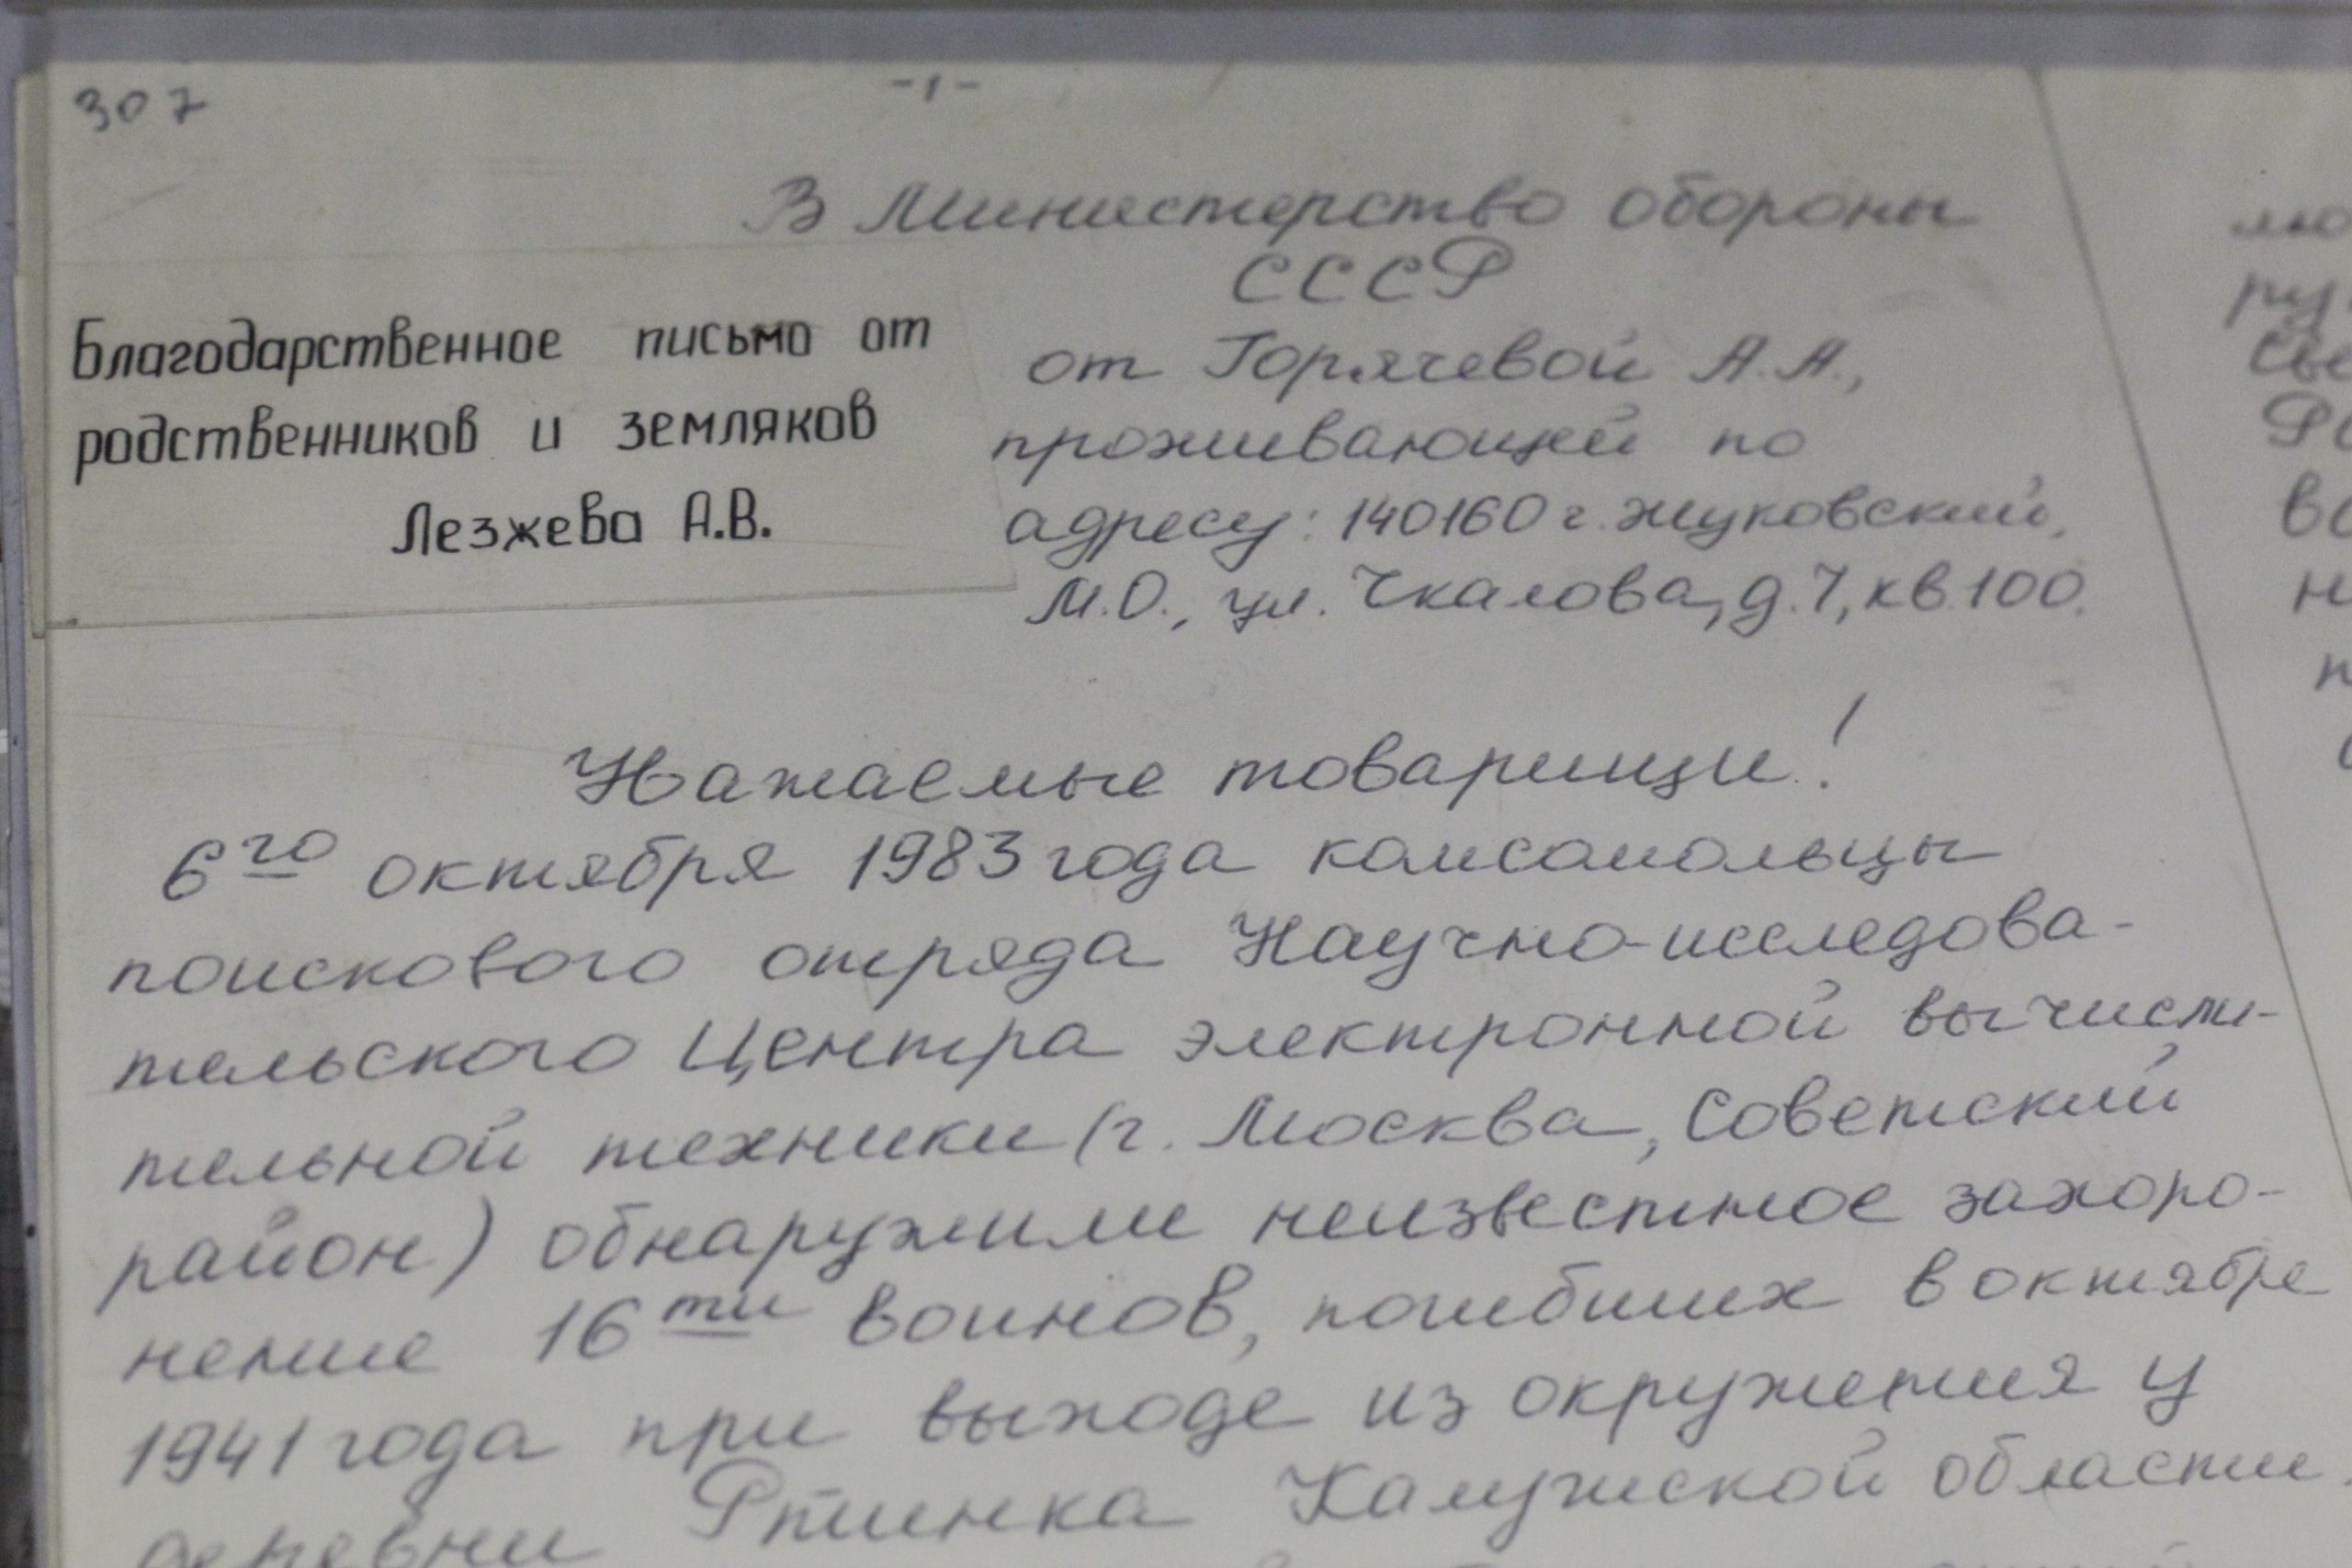 307
-1-
В Министерство обороны
СССР
Благодарственное письмо от
родственников и земляков
Лезжева А.В.
от Горячевой А.А.,
проживающей по
адресу: 140160 г. Жуковский,
М.О., ул. Чкалова, д.7, кв.100.
Уважаемые товарищи!
6го октября 1983 года комсомольцы
поискового отряда Научно-исследова-
тельского Центра электронной вычисли-
тельной техники (г. Москва, Советский
район) обнаружили неизвестное захоро-
нение 16ти воинов, погибших в октябре
1941 года при выходе из окружения у
деревни Ртинка Калужской области